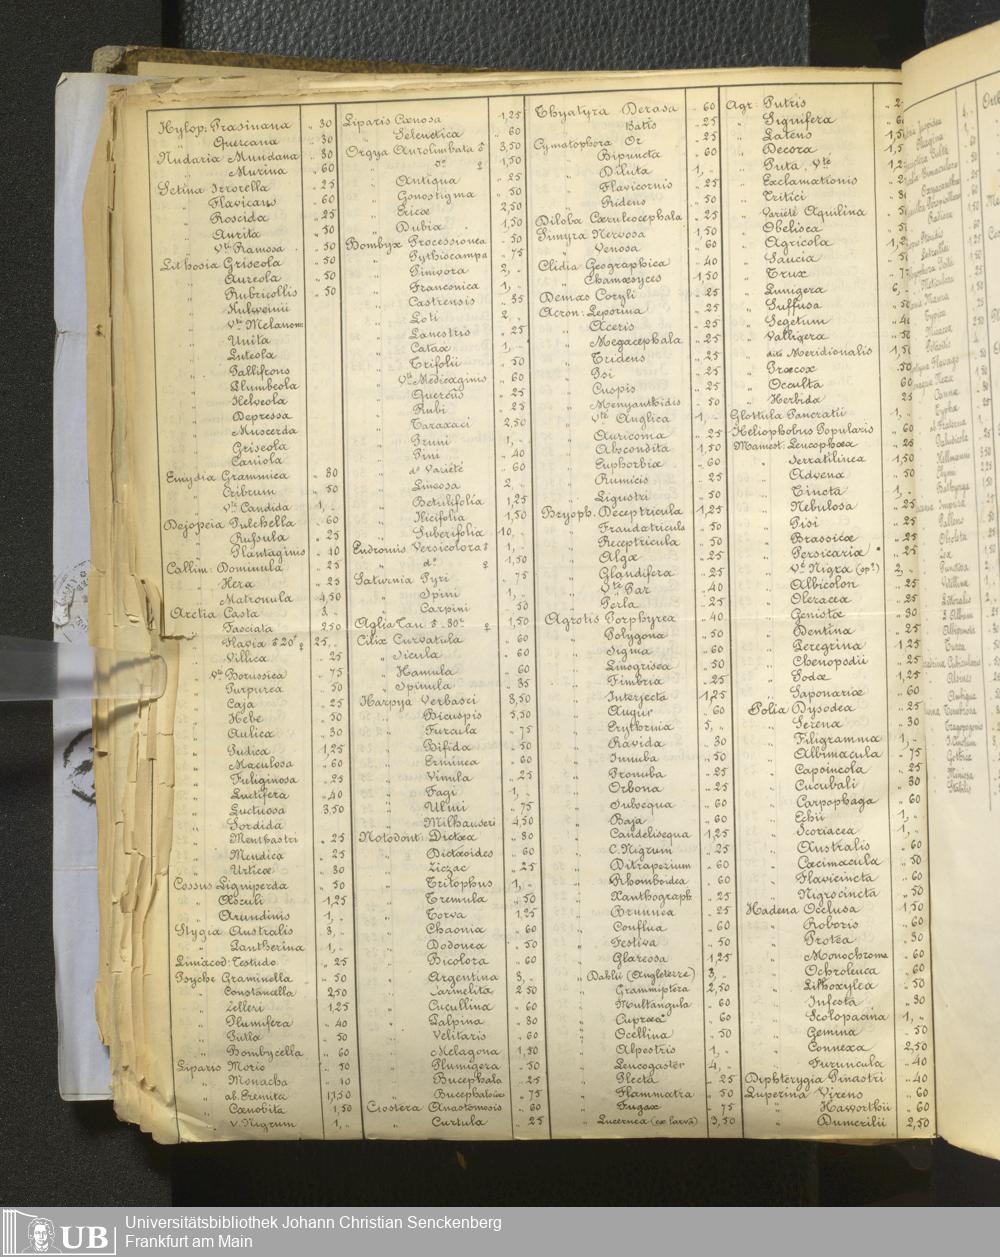 Hylop: Prasinana „ 30
„ Quercana „ 30
Nudaria Mundana „ 30
„ Murina „ 60
Setina Irrorella „ 25
„ Flavicans „ 60
„ Roscida „ 25
„ Aurita „ 50
„ Vté Ramosa „ 50
Lithosia Griseola „ 50
„ Aureola „ 50
„ Rubricollis „ 50
„ Kulweinii
„ Vté Melanom:
„ Unita
„ Luteola
„ Pallifrons
„ Plumbeola
„ Helveola
„ Depressa
„ Muscerda
„ Griseola
„ Caniola
Emydia Grammica „ 30
„ Cribrum „ 50
„ Vté Candida 1, „
Dejopeia Pulchella „ 60
„ Russula „ 25
„ Plantaginis „ 40
Callim: Dominula „ 25
„ Hera „ 25
„ Matronula 4,50
Arctia Casta 3, „
„ Fasciata 2,50
„ Flavia 25, „
„ Villica „ 25
„ Vté Borussica „ 75
„ Purpurea „ 50
„ Caja „ 25
„ Hebe „ 50
„ Aulica „ 30
„ Pudica 1,25
„ Maculosa „ 60
„ Fuliginosa „ 25
„ Luctifera „ 40
„ Luctuosa 3,50
„ Sordida
„ Menthastri „ 25
„ Mendica „ 25
„ Urticæ „ 30
Cossus Ligniperda „ 50
„ Aesculi 1,25
„ Arundinis 1, „
Stygia Australis 3, „
„ Pantherina 1, „
Limacod: Testudo „ 25
Psyche Graminella „ 50
„ Constancella 2,50
„ Zelleri 1,25
„ Plumifera „ 40
„ Pulla „ 50
„ Bombycella „ 60
Liparis Morio „ 50
„ Monacha „ 40
„ ab. Eremita 1,50
„ Cœnobita 1,50
„ V. Nigrum 1, „
Liparis Cœnosa 1,25
„ Selenetica „ 60
Orgya Aurolimbata 3,50
„ do ♀ 1,50
„ Antiqua „ 25
„ Gonostigma „ 50
„ Ericæ 2,50
„ Dubia 1,50
Bombyx Processionea „ 50
„ Pythiocampa „ 75
„ Pinivora 2, „
„ Franconica 1, „
„ Castrensis „ 35
„ Loti 2, „
„ Lanestris „ 25
„ Catax 1, „
„ Trifolii „ 50
„ Vté Medicaginis „ 60
„ Quercûs „ 25
„ Rubi „ 25
„ Taraxaci 2,50
„ Pruni 1, „
„ Pini „ 40
„ do Variété „ 60
„ Lineosa 2, „
„ Betulifolia 1,25
„ Ilicifolia 1,50
„ Suberifolia 10, „
Endromis Versicolora 1, „
„ do ♀ 1,50
Saturnia Pyri „ 75
„ Spini 1, „
„ Carpini „ 50
Aglia Tau ♀ 1,50
Cilix Curvatula „ 60
„ Sicula „ 60
„ Hamula „ 60
„ Spinula „ 35
Harpya Verbasci 3,50
„ Bicuspis 5,50
„ Furcula „ 75
„ Bifida „ 50
„ Erminea „ 60
„ Vinula „ 25
„ Fagi 1, „
„ Ulmi „ 75
„ Milhauseri 4,50
Notodont: Dictæa „ 30
„ Dictæoides „ 60
„ Ziczac „ 25
„ Tritophus 1, „
„ Tremula „ 50
„ Torva 1,25
„ Chaonia „ 60
„ Dodonea „ 50
„ Bicolora „ 60
„ Argentina 3, „
„ Carmelita 2 50
„ Cucullina „ 60
„ Palpina „ 30
„ Velitaris „ 60
„ Melagona 1,50
„ Plumigera „ 50
„ Bucephala „ 25
„ Bucephaloides „ 75
Clostera Anastomosis „ 60
„ Curtula „ 25
Thyatyra Derasa „ 60
„ Batis „ 25
Cymatophora Or „ 25
„ Bipuncta „ 60
„ Diluta 1, „
„ Flavicornis „ 25
„ Ridens „ 50
Diloba Cæruleocephala „ 25
Simyra Nervosa 1,50
„ Venosa „ 60
Clidia Geographica „ 40
„ Chamæsyces 1,50
Demas Coryli „ 25
Acron: Leporina „ 25
„ Aceris „ 25
„ Megacephala „ 25
„ Tridens „ 25
„ Psi „ 25
„ Cuspis „ 25
„ Menyanthidis „ 50
„ Vté Anglica 1, „
„ Auricoma „ 25
„ Abscondita 1,50
„ Euphorbiæ „ 60
„ Rumicis „ 25
„ Ligustri „ 50
Bryoph. Deceptricula 1,25
„ Fraudatricula „ 50
„ Receptricula „ 50
„ Algæ „ 25
„ Glandifera „ 25
„ Vté Par „ 40
„ Perla „ 25
Agrotis Porphyrea „ 40
„ Polygona „ 50
„ Sigma „ 60
„ Linogrisea „ 50
„ Fimbria „ 25
„ Interjecta 1,25
„ Augur „ 60
„ Erythrina 5, „
„ Ravida „ 30
„ Innuba „ 50
„ Pronuba „ 25
„ Orbona „ 25
„ Subsequa „ 60
„ Baja „ 60
„ Candelisequa 1,25
„ C. Nigrum „ 25
„ Ditrapezium „ 60
„ Rhomboidea „ 60
„ Xanthograph „ 25
„ Brunnea „ 25
„ Conflua „ 60
„ Festiva „ 50
„ Glareosa 1,25
„ Dahlii (Angleterre) 3, „
„ Grammiptera 2,50
„ Multangula „ 60
„ Cupræa „ 60
„ Ocellina „ 50
„ Alpestris 1, „
„ Leucogaster 4, „
„ Plecta „ 25
„ Flammatra „ 50
„ Fugax „ 75
„ Lucernea (ex larvâ) 3,50
Agr: Putris
„ Signifera
„ Latens
„ Decora
„ Puta, Vté
„ Exclamationis
„ Tritici
„ Variété Aquilina
„ Obelisca
„ Agricola
„ Saucia
„ Crux
„ Lunigera
„ Suffusa
„ Segetum
„ Valligera
„ dita Meridionalis
„ Præcox „ 50
„ Occulta 60
„ Herbida 25
Glottula Pancratii 1, „
Heliophobus Popularis „ 60
Mamest: Leucophæa „ 25
„ Serratilinea 1,50
„ Advena „ 50
„ Tincta 1, „
„ Nebulosa „ 25
„ Pisi „ 25
„ Brassicæ „ 25
„ Persicariæ „ 25
„ Vté Nigra 2, „
„ Albicolon „ 25
„ Oleracea „ 25
„ Genistæ „ 30
„ Dentina „ 25
„ Peregrina 1,25
„ Chenopodii „ 25
„ Sodæ 1,25
„ Saponariæ „ 60
Polia Dysodea „ 25
„ Serena „ 30
„ Filigramma 1, „
„ Albimacula „ 75
„ Capsincola „ 25
„ Cucubali „ 30
„ Carpophaga „ 60
„ Echii 1, „
„ Scoriacea 1, „
„ Australis „ 60
„ Cæcimacula „ 50
„ Flavicincta „ 60
„ Nigrocincta „ 50
Hadena Occlusa 1,50
„ Roboris „ 60
„ Protea „ 30
„ Monochroma „ 60
„ Ochroleuca „ 60
„ Lithoxylea „ 50
„ Infesta „ 30
„ Scolopacina 1, „
„ Gemina „ 50
„ Connexa 2,50
„ Furuncula „ 40
Dipthérygia Pinastri „ 40
Luperina Virens „ 60
„ Haworthii „ 60
„ Dumerilii 2,50
UB
Universitätsbibliothek Johann Christian Senckenberg
Frankfurt am Main